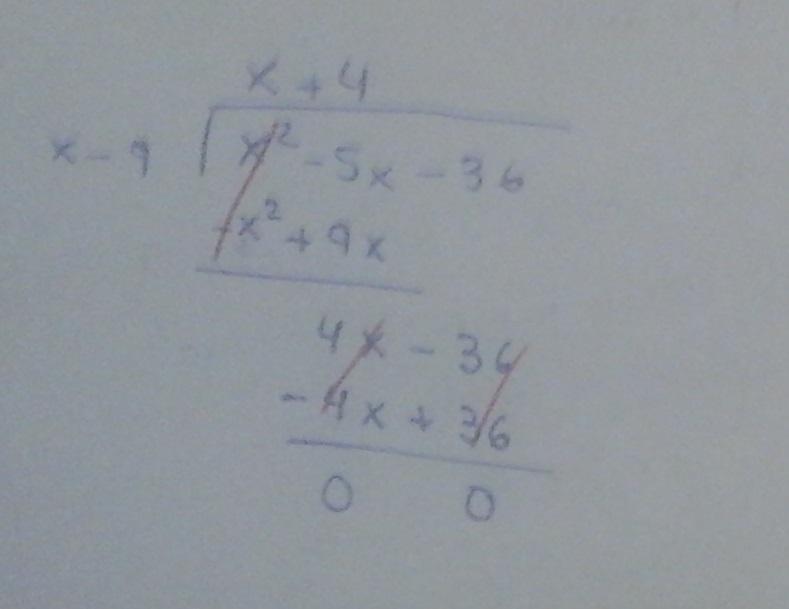 x + 4
x - 9 x² - 5x - 36
-x² + 9x
4x - 36
-4x + 36
0 0